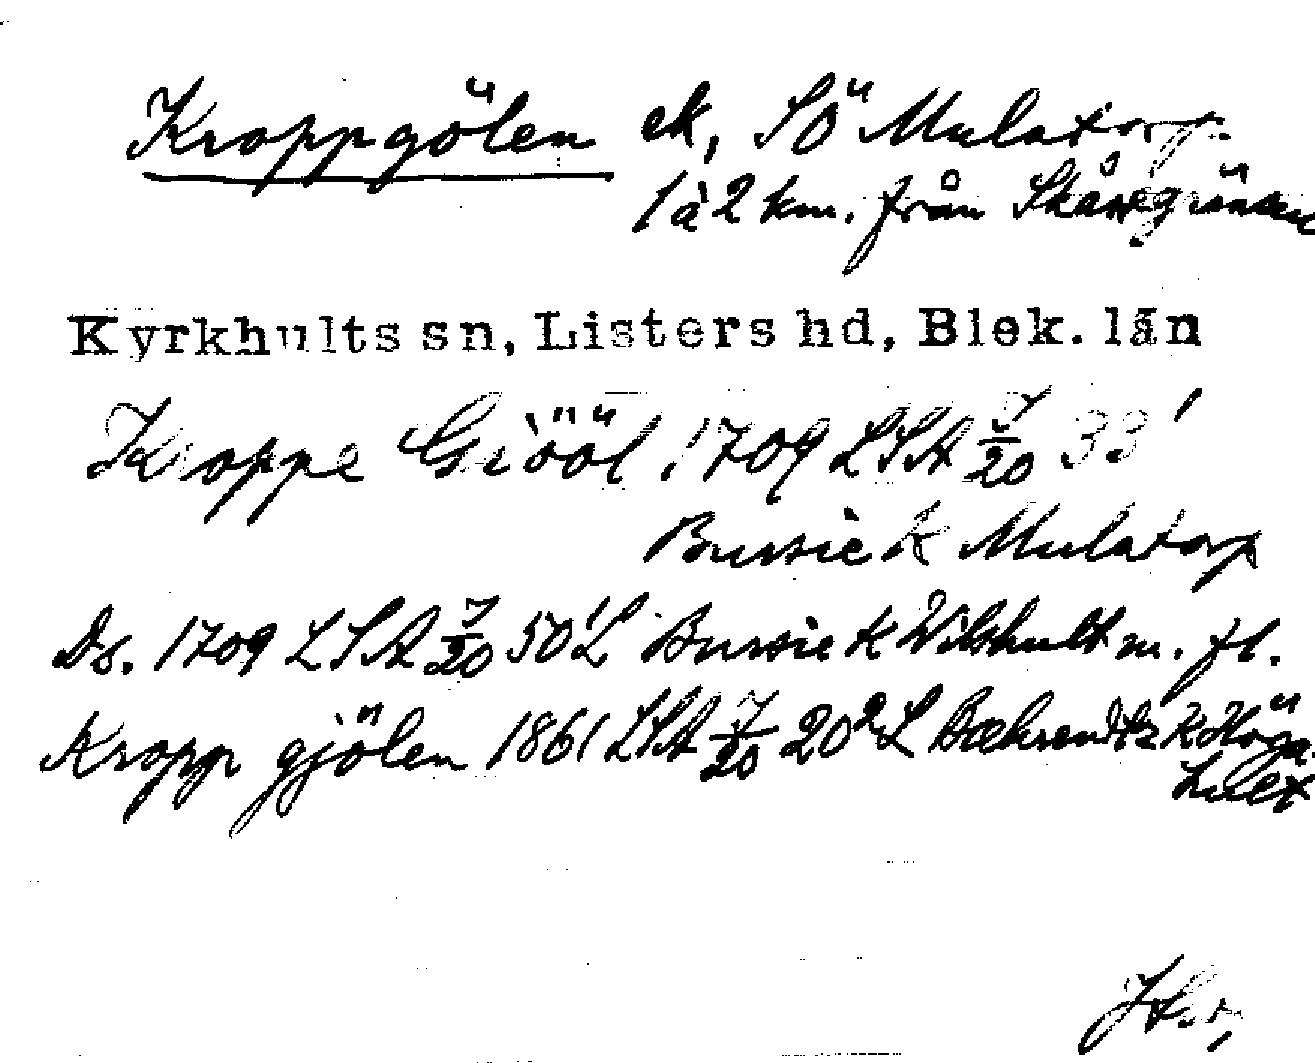 Kroppgölen ek, SÖ Mulatorp.
1 à 2 km. från Skånegränsen
Kyrkhults sn, Listers hd, Blek. län
Kroppe Giööl 1709 LSA 7/20 33'
Bursie K Mulatorp
Ds. 1709 LSA 7/20 50'L Bursie K Wilshult m. fl.
Kropp gjölen 1861 LSA 7/20 20² L Bæhrendtz K Höga
hult